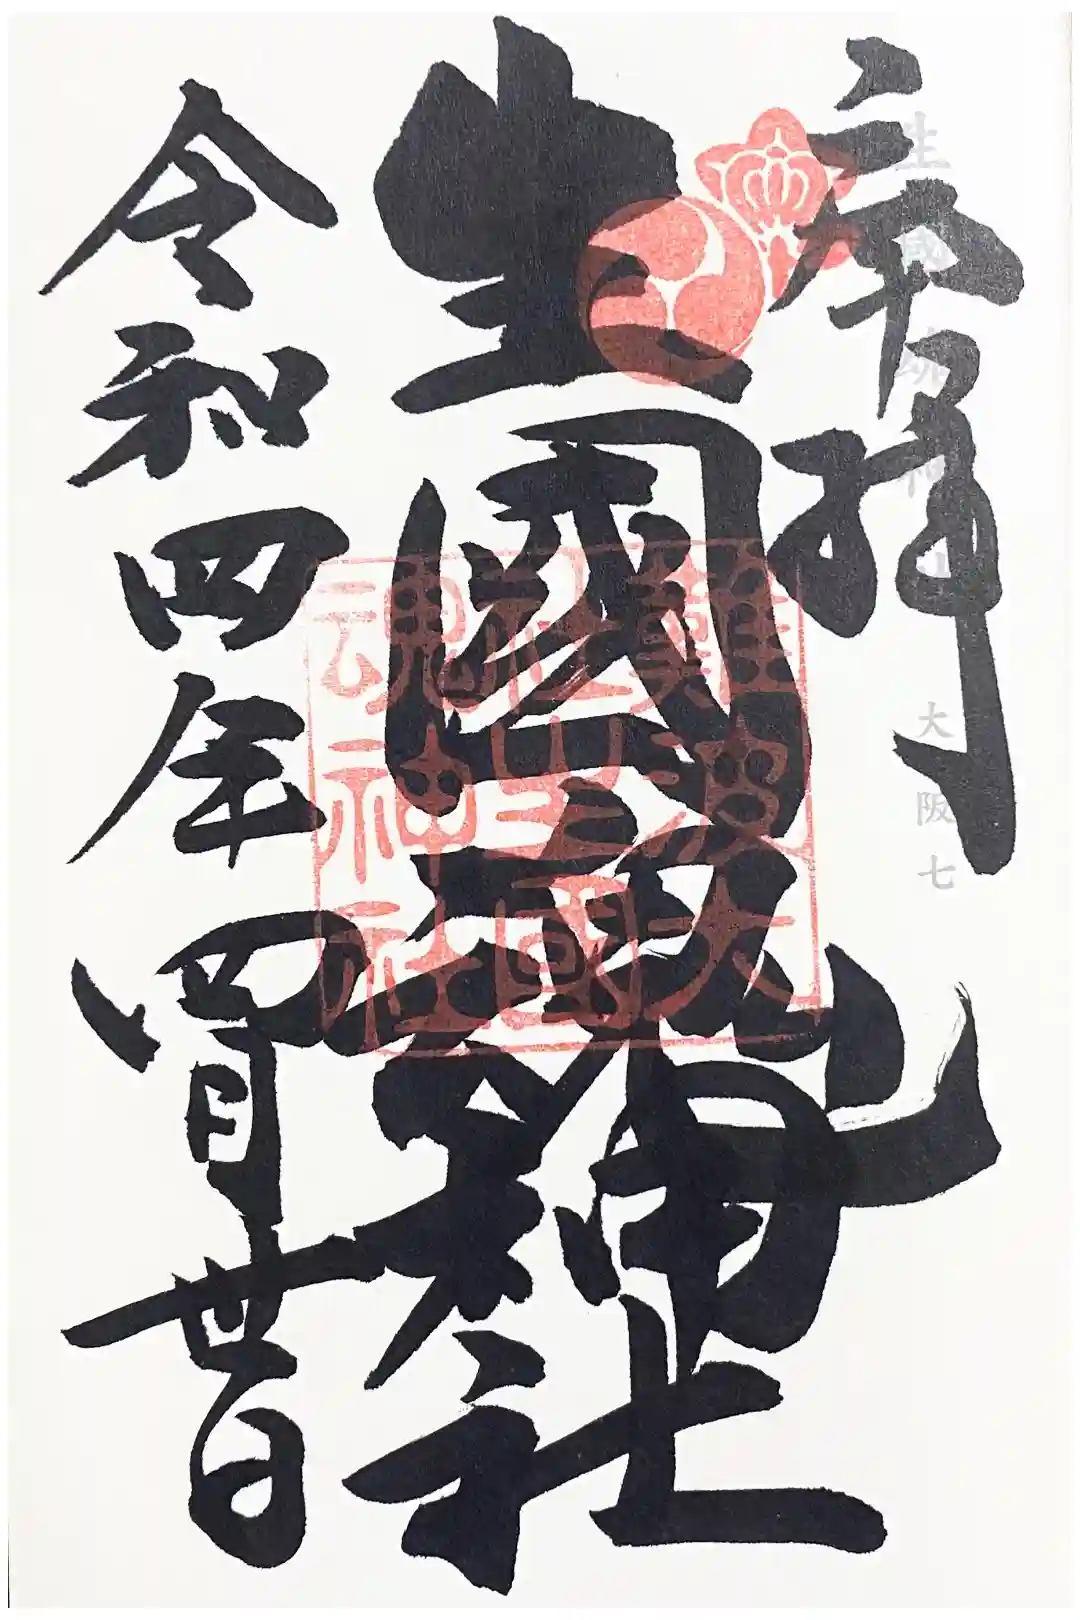 奉拜
生國魂神社
令和四年四月丗日
難波大
社生國
魂神社
生國魂神社 大阪七